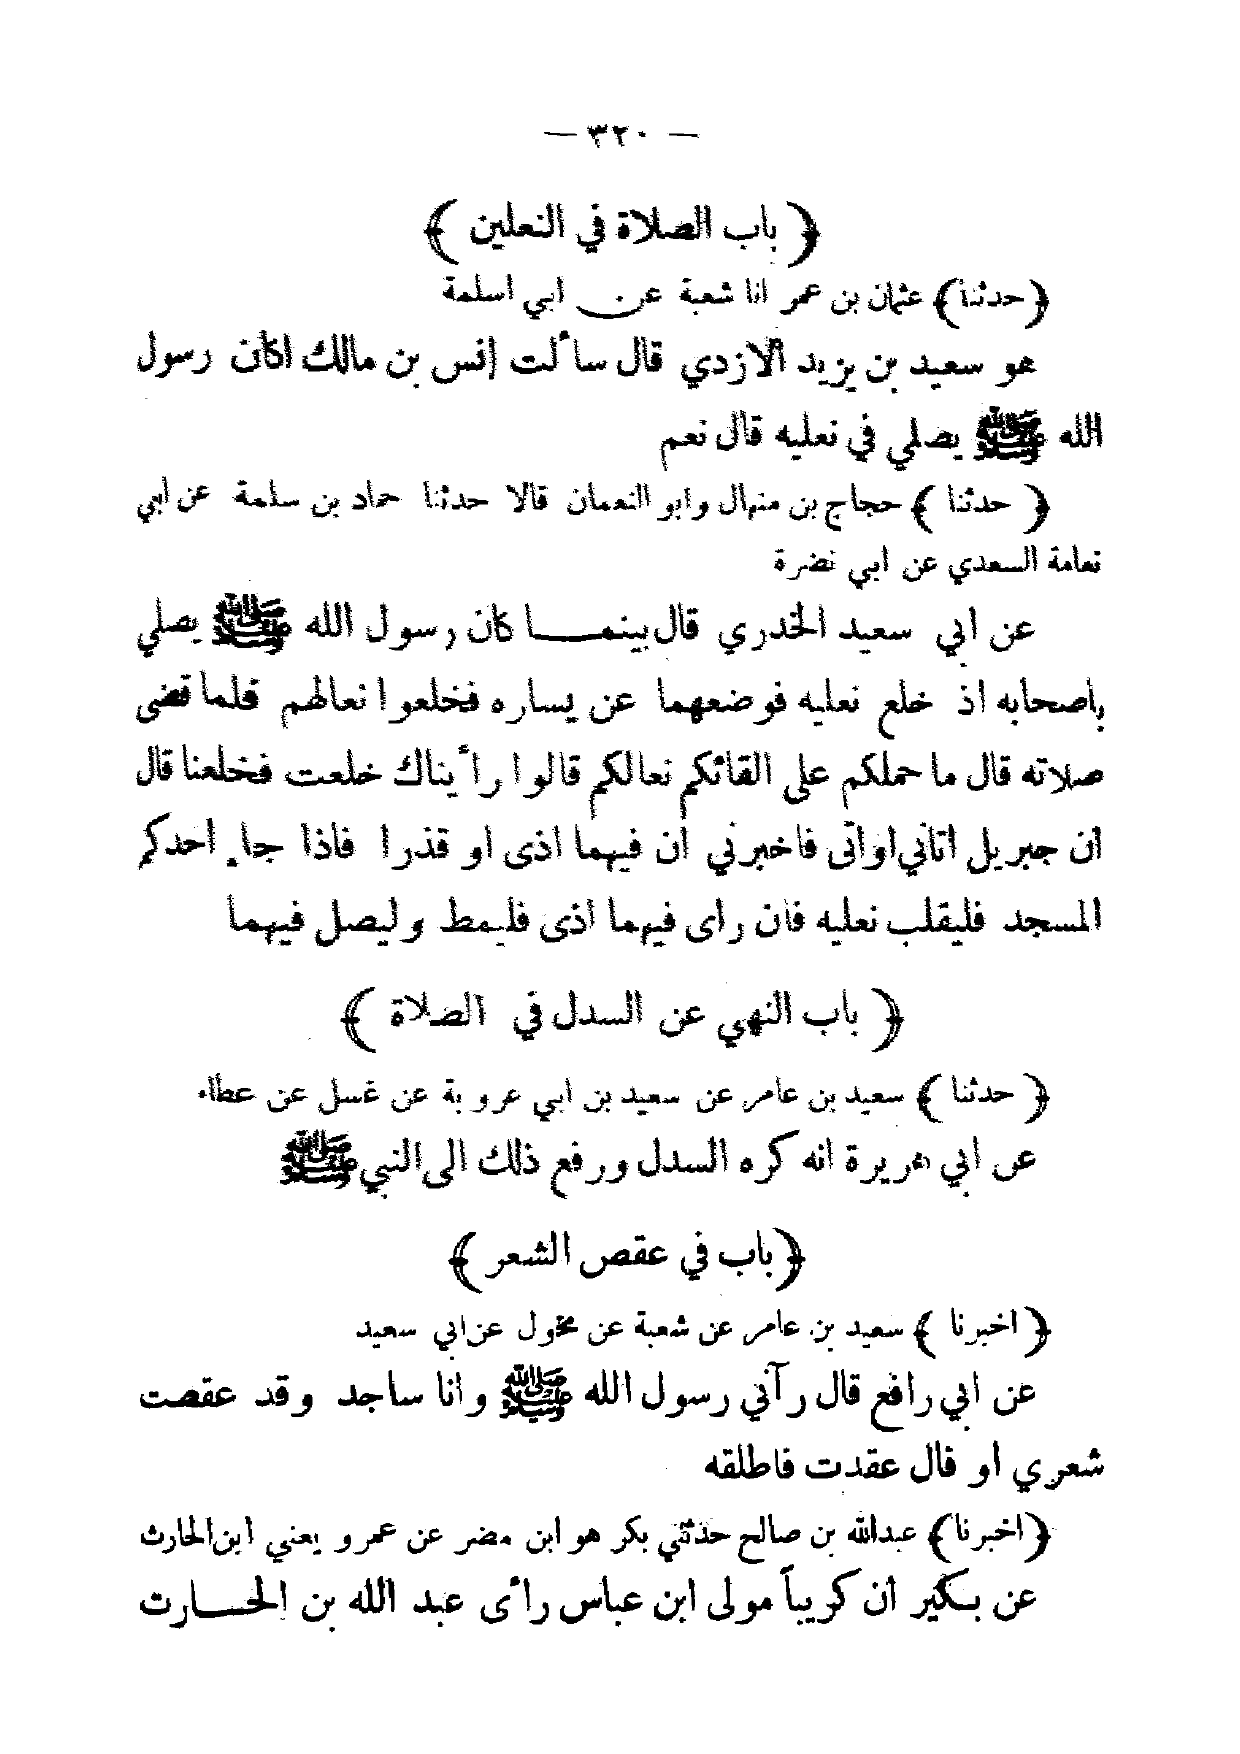 — ٣٢٠ —
﴿ باب الصلاة في النعلين ﴾
﴿حدثنا﴾ عثمان بن عمر انا شعبة عن ابي اسلمة
هو سعيد بن يزيد الازدي قال سألت إنس بن مالك اكان رسول
الله ﷺ يصلي في نعليه قال نعم
﴿ حدثنا ﴾ حجاج بن منهال وابو النعمان قالا حدثنا حماد بن سلمة عن ابي
نعامة السعدي عن ابي نضرة
عن ابي سعيد الخدري قال بينمـا كان رسول الله ﷺ يصلي
باصحابه اذ خلع نعليه فوضعهما عن يساره فخلعوا نعالهم فلما قضى
صلاته قال ما حملكم على القائكم نعالكم قالوا رأيناك خلعت فخلعنا قال
ان جبريل اتاني اواتى فاخبرني ان فيهما اذى او قذرا فاذا جاء احدكم
المسجد فليقلب نعليه فان راى فيهما اذى فليمط وليصل فيهما
﴿ باب النهي عن السدل في الصلاة ﴾
﴿ حدثنا ﴾ سعيد بن عامر عن سعيد بن ابي عروبة عن غسل عن عطاء
عن ابي هريرة انه كره السدل ورفع ذلك الى النبي ﷺ
﴿باب في عقص الشعر ﴾
﴿ اخبرنا ﴾ سعيد بن عامر عن شعبة عن مخول عن ابي سعيد
عن ابي رافع قال رآني رسول الله ﷺ وانا ساجد وقد عقصت
شعري او قال عقدت فاطلقه
﴿اخبرنا﴾ عبدالله بن صالح حدثني بكر هو ابن مضر عن عمرو يعني ابن الحارث
عن بكير ان كريباً مولى ابن عباس رأى عبد الله بن الحـارث